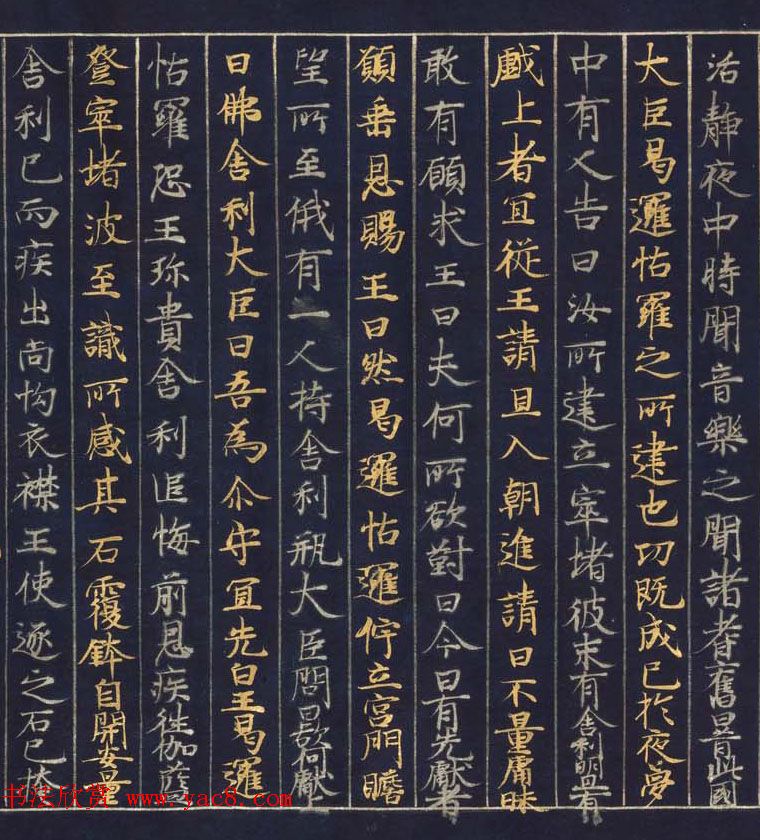 活静夜中時聞音樂之聞諸耆舊曰昔此國
大臣曷邏怙羅之所建也功既成已於夜夢
中有人告曰汝所建立窣堵彼未有舍利明旦有
戲上者冝從王請旦入朝進請曰不量庸昧
敢有願求王曰夫何所欲對曰今日有先獻者
願垂恩賜王曰然曷邏怙邏佇立宮門瞻
望所至俄有一人持舍利瓶大臣問曰欲何獻上
曰佛舍利大臣曰吾為尒守冝先白王曷邏
怙羅恐王珎貴舍利追悔前恩疾往伽藍
登窣堵波至識所感其石覆鉢自開安置
舍利已而疾出尚拘衣襟王使逐之石已掩
书法欣赏 www.yac8.com